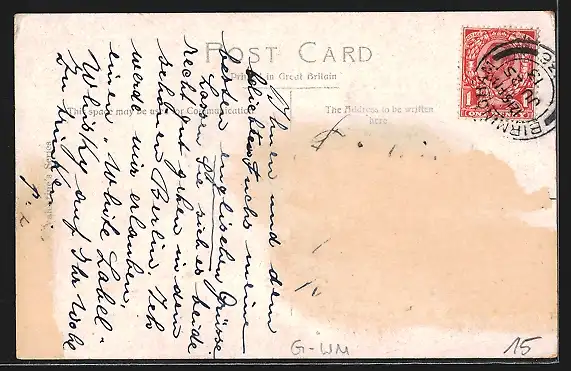 POST CARD
Printed in Great Britain
This space may be used for Communication
The Address to be written
here
Ihnen und dem
Fuchs meine
besten englischen Grüsse.
Lassen Sie sich es beide
recht gut gehen in dem
schönen Berlin. Ich
werde mir erlauben,
einen "White Label"-
Whisky auf Ihr Wohl
zu trinken
BIRMINGHAM
G-WM
15